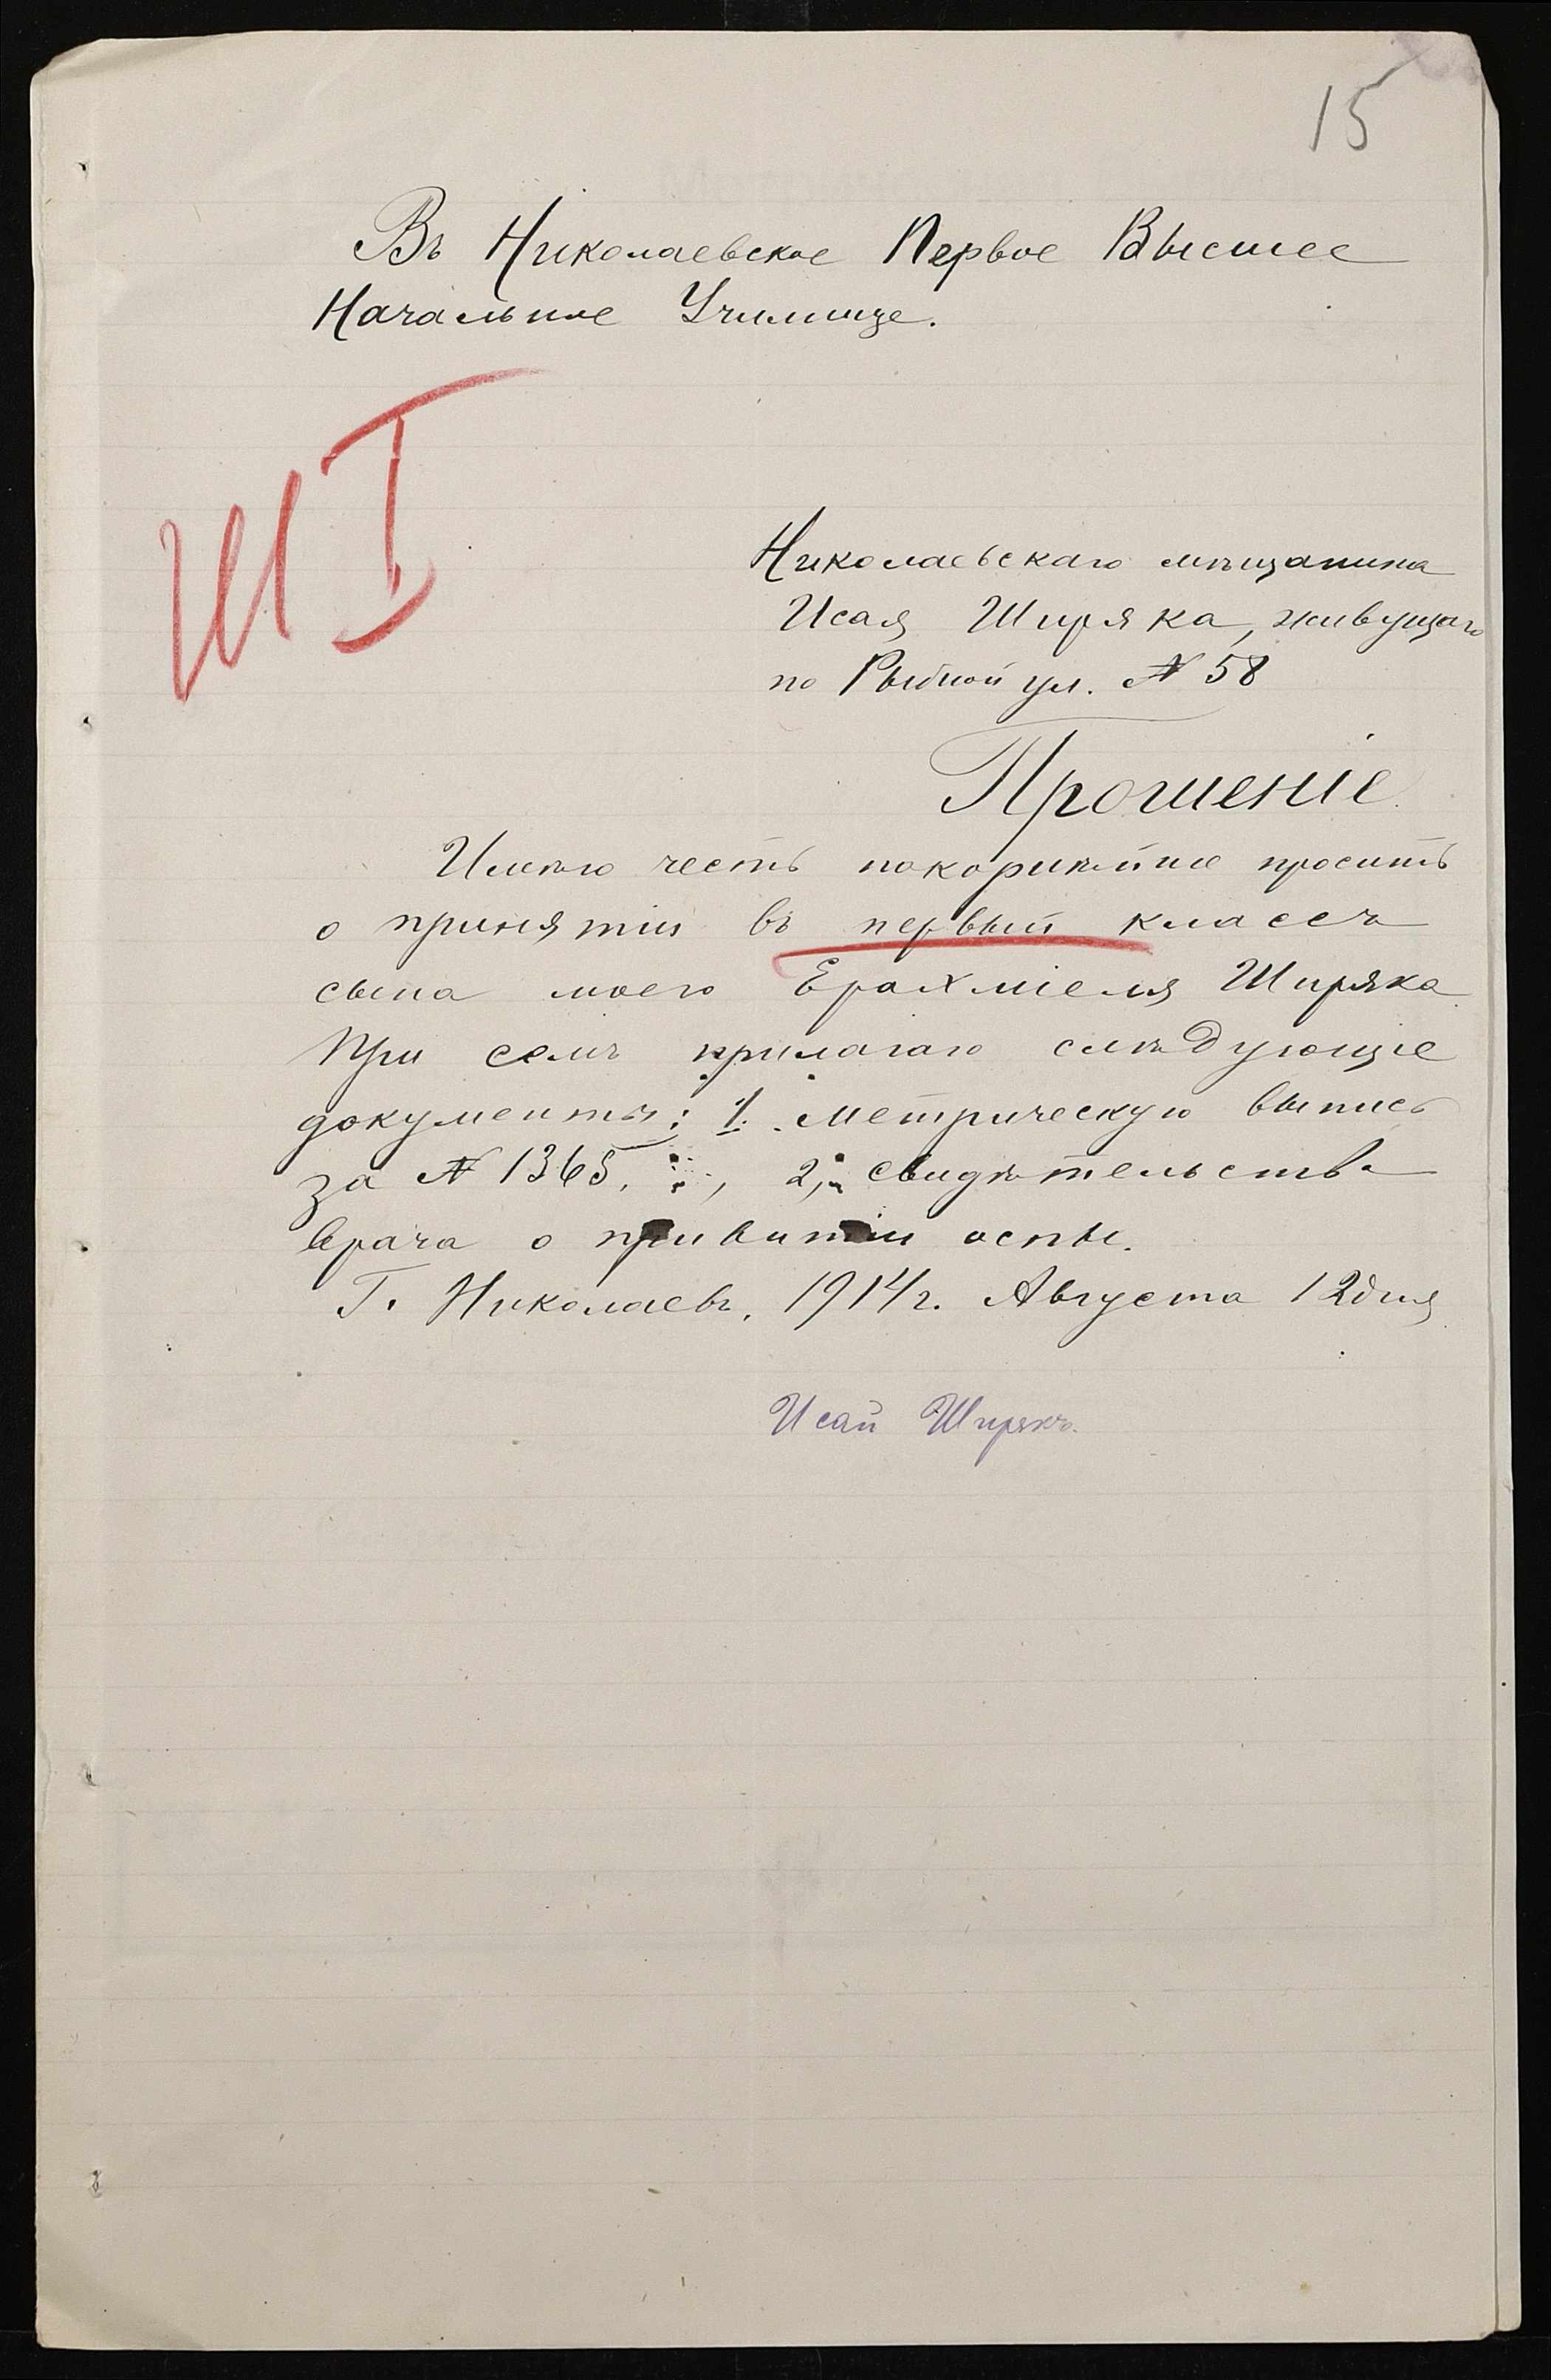 15
Въ Николаевское Первое Высшее
Начальное Училище.
Ш I
Николаевскаго мѣщанина
Исая Ширяка, живущаго
по Рыбной ул. № 58
Прошеніе
Имѣю честь покорнѣйше просить
о принятіи въ первый классъ
сына моего Ерахміеля Ширяка
При семъ прилагаю слѣдующіе
документы: 1. Метрическую выпись
за № 1365, 2, свидѣтельство
врача о привитіи оспы.
Г. Николаевъ, 1914 г. Августа 12 дня
Исай Ширякъ.